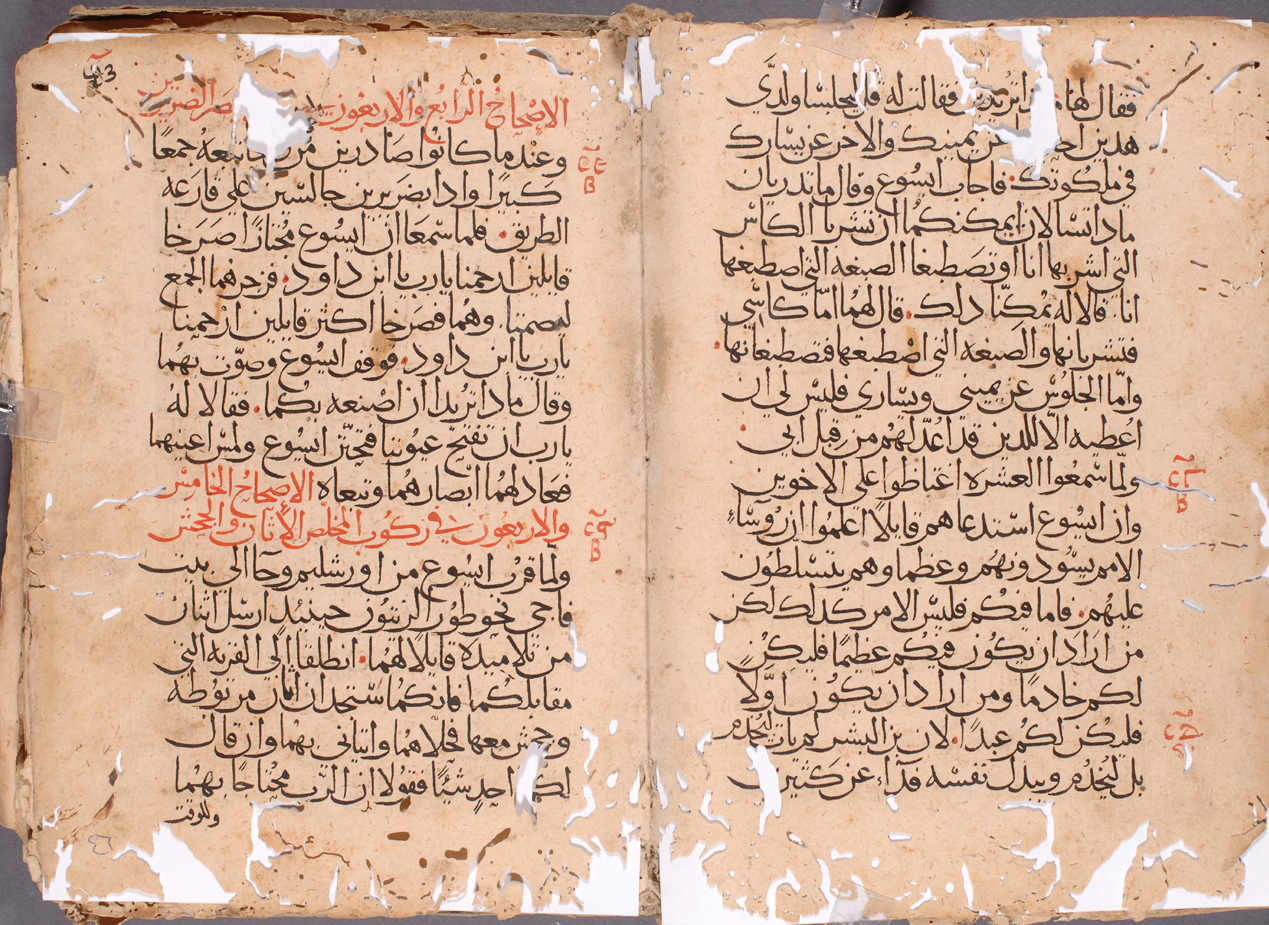 فقال لها ماذا تريدين فقالت له قل يجلسا ولدَّي
هدين احدهما عن يمينك والاخر عن يسارك
في ملكوتك فاجاب ايسوع وقال ما تدريان
مادا تسالان ايمكنكما ان تشربا الكاس
التي اشربها انا او تصطبغا الصبغه التي اصطبغها
انا قالا له يمكنّا دلك قال لهما امّا كاسي
فتشربانها والصبغه التي اصطبغها فتصطبغانها
وامّا الجلوس عن يميني ويساري فليس لي ان
اعطيه الّا للدين قد اعدّ لهم من قبل ابي
ولمّا سمعوا العشره اغتاظوا على الاخوين
وان ايسوع استدعاهم قايلًا اعلموا ان روساء
الامم يسودونهم وعظماوهم يتسلطون
عليهم فاما فيكم فليس الامر كدلك لكن
من اراد ان يكون فيكم عظيمًا فليكن
لكم خادمًا ومن اراد ان يكون اوّلًا
فليكن لكم عبدًا لان بن البشر لم يات ليُخدم
بل ليَخدم ويبدل نفسه فدآء عن كثيرين
الاصحاح الرابع والاربعون الضريرين
وعندما كانوا صادرين من تبعه جمعًا
كبيرًا وادا بضريرين جالسين علي قارعه
الطريق فلما سمعا ان ايسوع مجتازًا صرخا
قايلين ارحمنا يارب يا ابن داود فزجرهما الجمع
ليصمتا وهما فصرخا اكثر قايلين ارحمنا
يارب يا ابن داود فوقف ايسوع وصوّت بهما
وقال مادا تريدا ان اصنعه بكما فقالا لهُ
يارب ان تفتح عيوننا فتحنّن ايسوع ولمس اعينهما
فعاد لهما ابصارهما وتبعاه الاصحاح الخامس
والاربعون في ركوب المخلص الاتان والجحش
ولمّا قرب ايسوع من اورشليم وجآ الي بيت
فاجي نحو طور الزيتون حينيدٍ ارسل اثنان
من تلاميده قايلًا لهما انطلقا الي القريه التي
مقابلكما فانكما ستجدان اتان مربوطه
وجحش معها فحلّاهما واتياني بهما وان قال
لكما احدٍ شيئًا فقولا ان الرب محتاجًا بهما
وللوقت